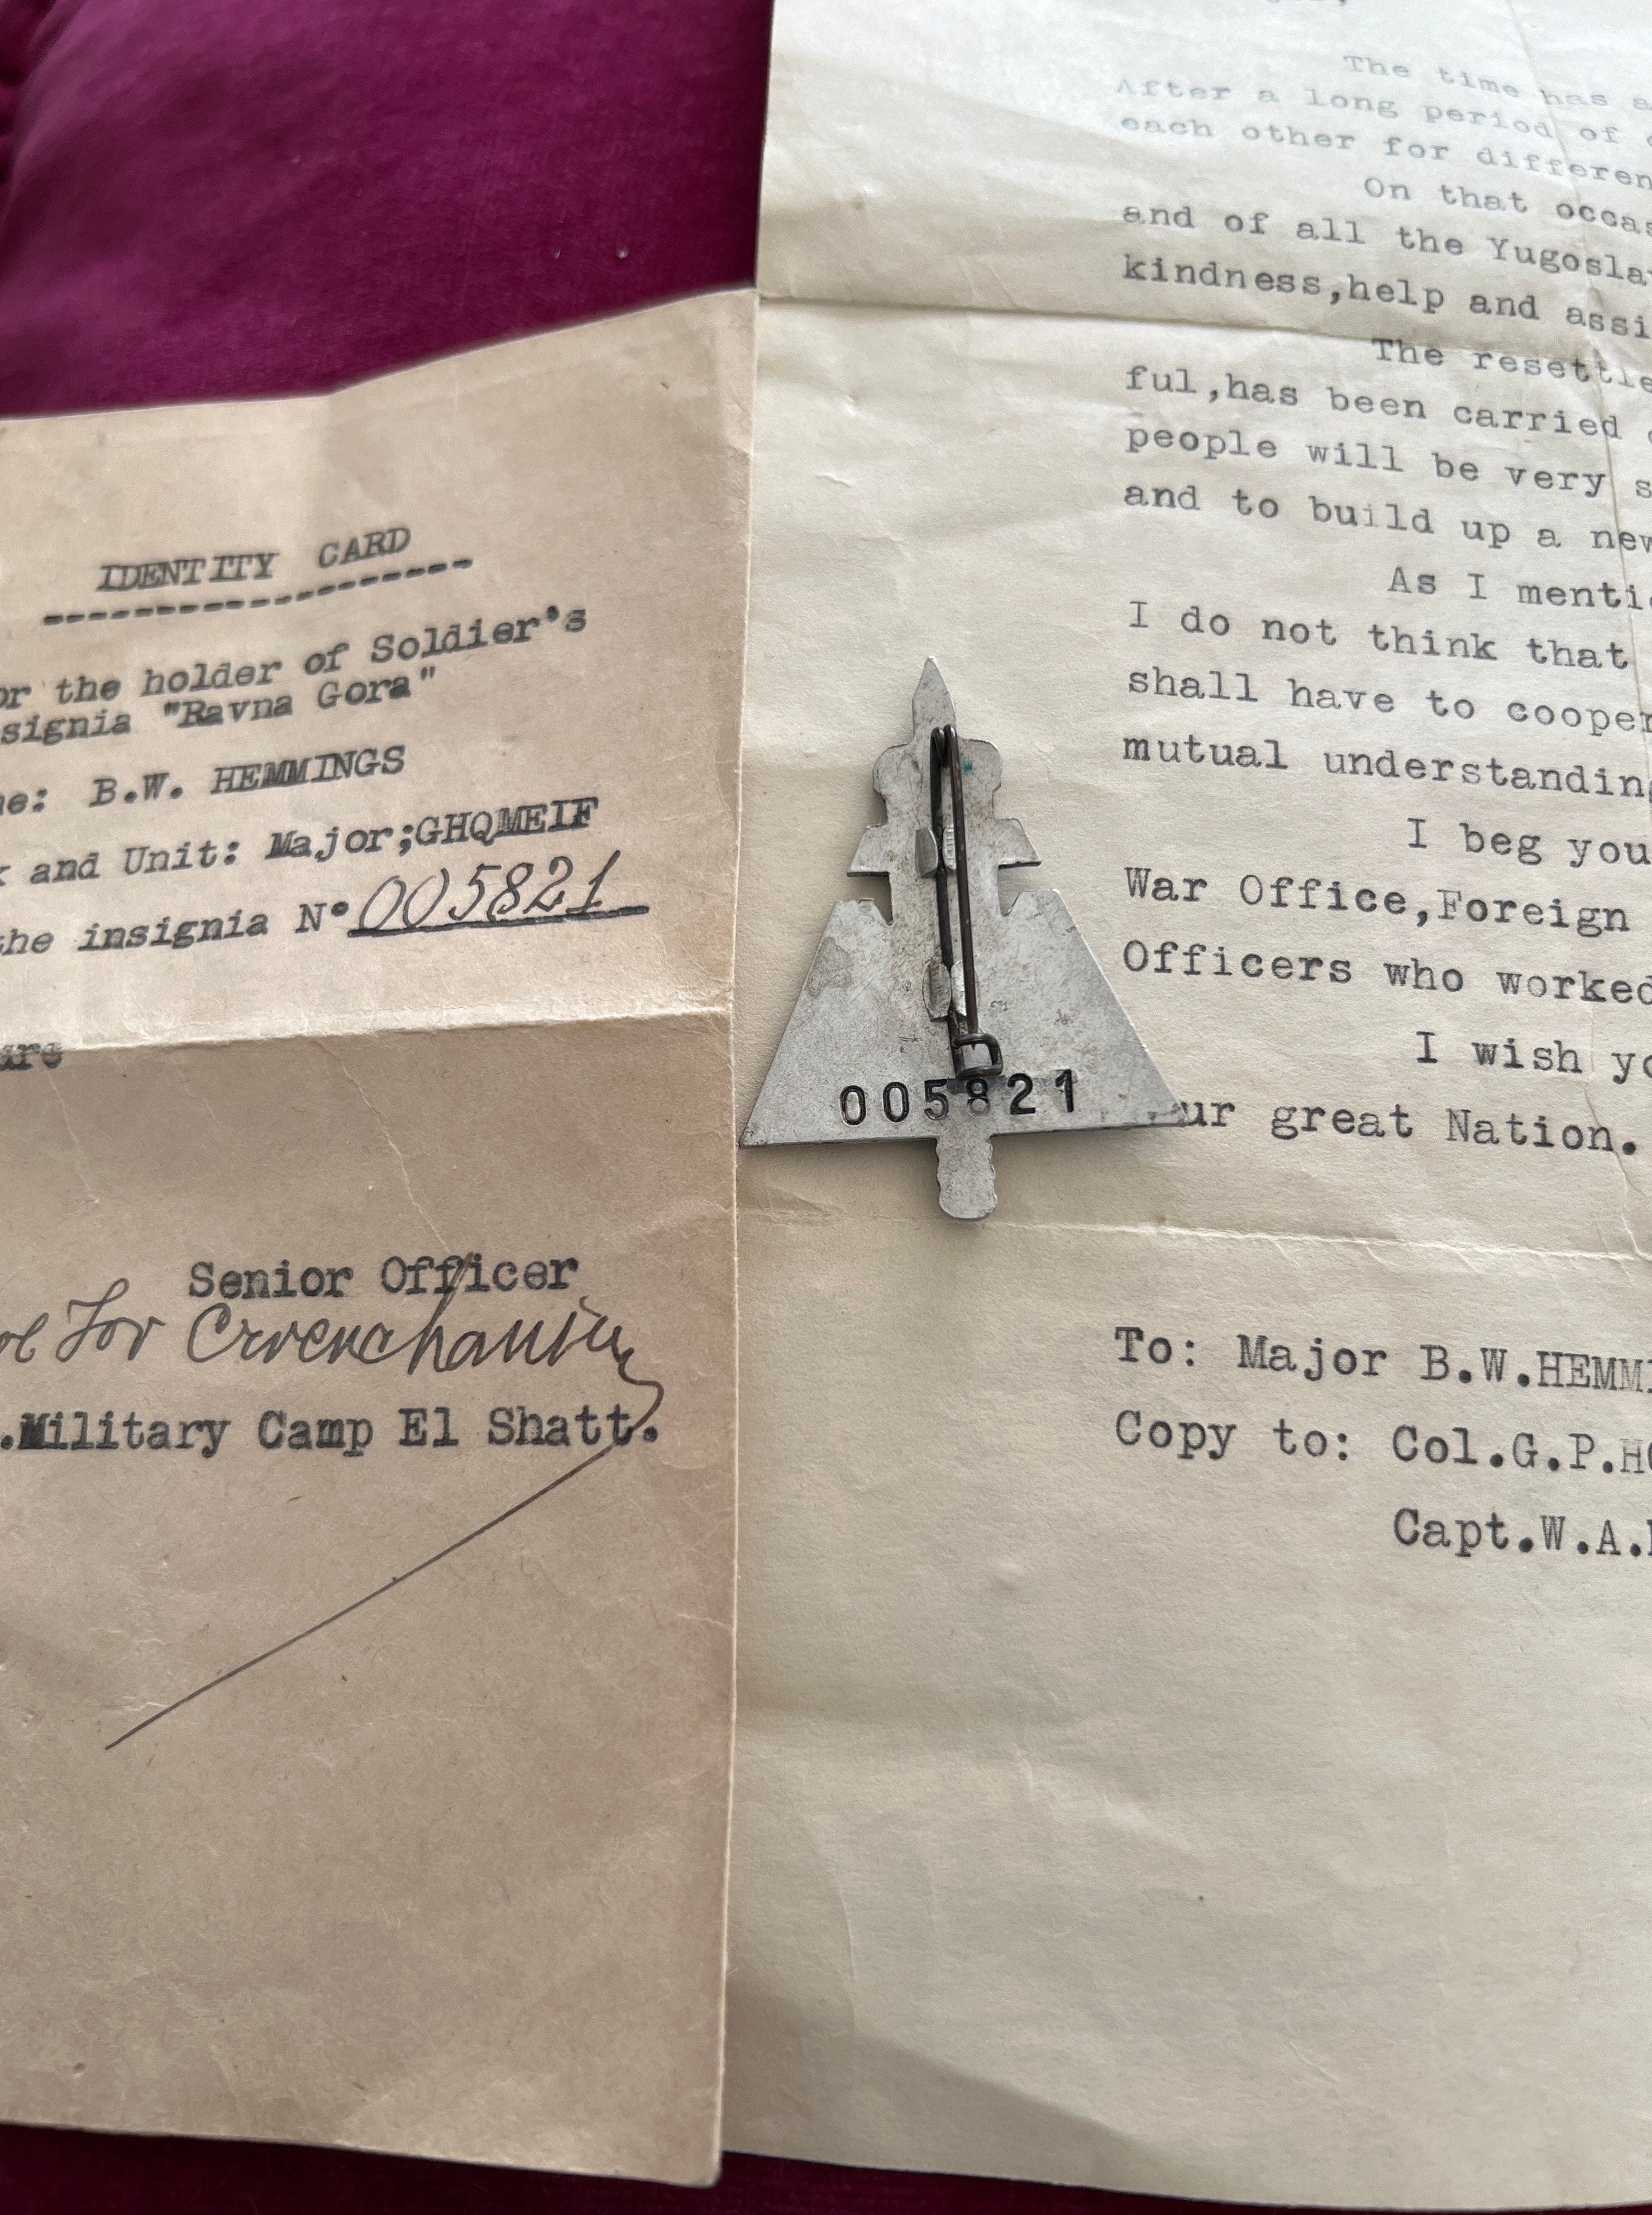 IDENTITY CARD
or the holder of Soldier's
signia "Ravna Gora"
me: B.W. HEMMINGS
k and Unit: Major;GHQMEIF
the insignia N° 005821
ure
Senior Officer
for
.Military Camp El Shatt.
005821
The time has a
After a long period of
each other for differen
On that occas
and of all the Yugosla
kindness,help and assi
The resettle
ful,has been carried
people will be very s
and to build up a new
As I menti
I do not think that
shall have to cooper
mutual understanding
I beg you
War Office,Foreign
Officers who worked
I wish yo
ur great Nation.
To: Major B.W.HEMMI
Copy to: Col.G.P.HO
Capt.W.A.